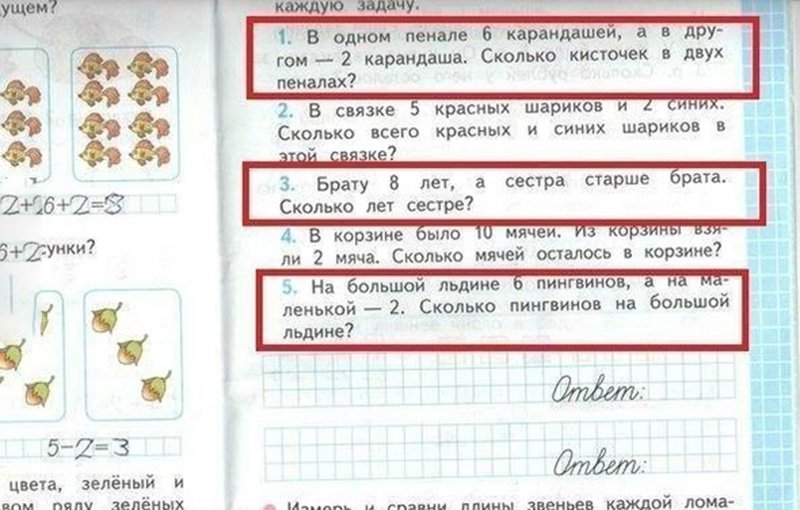 ущем?
2+6+2=8
6+2
сунки?
5-2=3
цвета, зелёный и
вом ряду зелёных
каждую задачу.
1. В одном пенале 6 карандашей, а в дру-
гом — 2 карандаша. Сколько кисточек в двух
пеналах?
2. В связке 5 красных шариков и 2 синих.
Сколько всего красных и синих шариков в
этой связке?
3. Брату 8 лет, а сестра старше брата.
Сколько лет сестре?
4. В корзине было 10 мячей. Из корзины взя-
ли 2 мяча. Сколько мячей осталось в корзине?
5. На большой льдине 6 пингвинов, а на ма-
ленькой — 2. Сколько пингвинов на большой
льдине?
Ответ:
Ответ:
Измерь и сравни длины звеньев каждой лома-